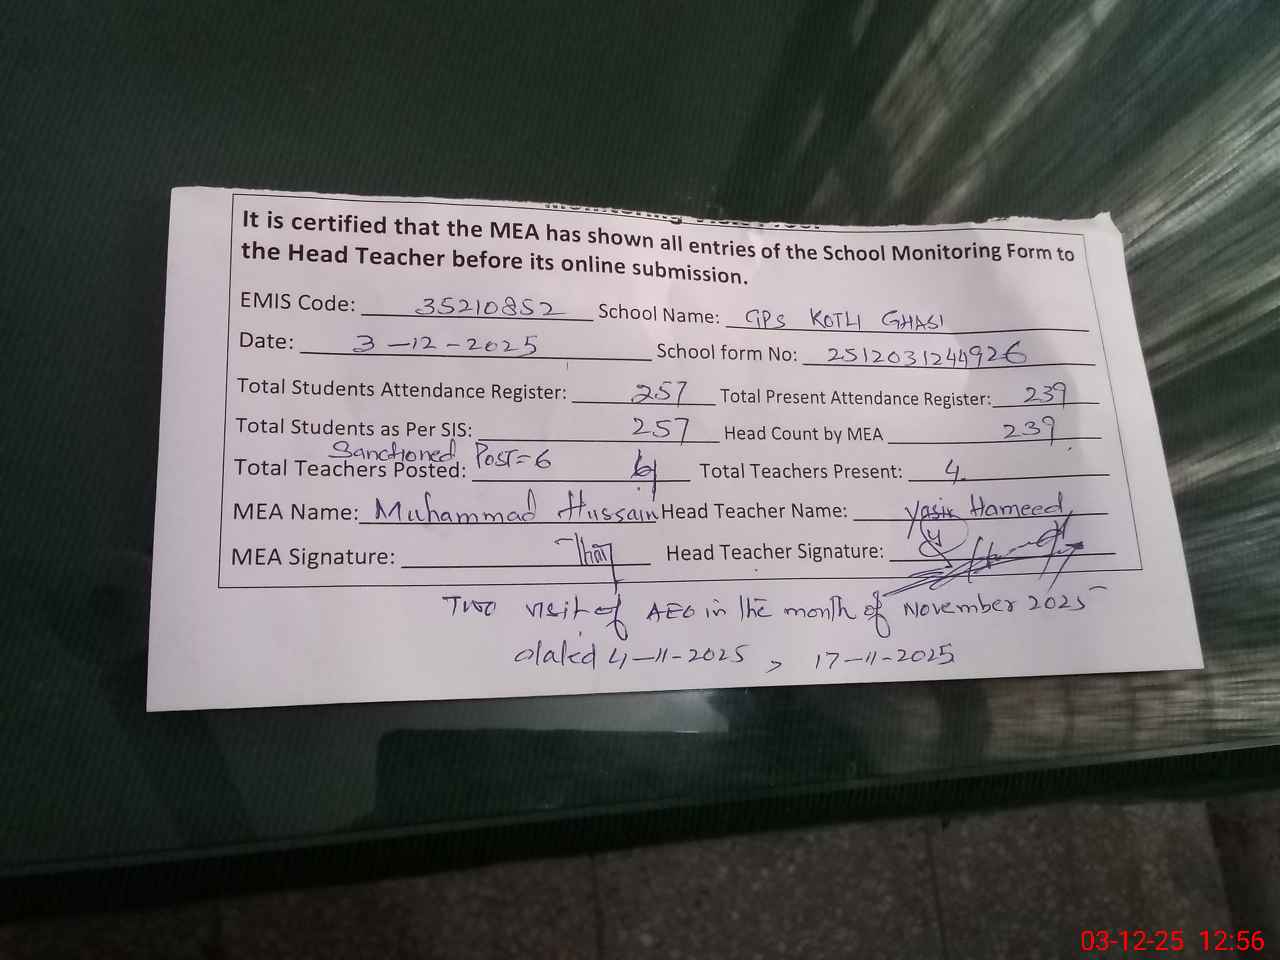 It is certified that the MEA has shown all entries of the School Monitoring Form to
the Head Teacher before its online submission.
EMIS Code: 35210852 School Name: GPS KOTLI GHASI
Date: 3-12-2025 School form No: 2512031244926
Total Students Attendance Register: 257 Total Present Attendance Register: 239
Total Students as Per SIS: 257 Head Count by MEA 239
Sanctioned Post=6
Total Teachers Posted: Total Teachers Present: 4
MEA Name: Muhammad Hussain Head Teacher Name: Yasir Hameed
MEA Signature: Head Teacher Signature:
Two visit of AEO in the month of November 2025
dated 4-11-2025, 17-11-2025
03-12-25 12:56